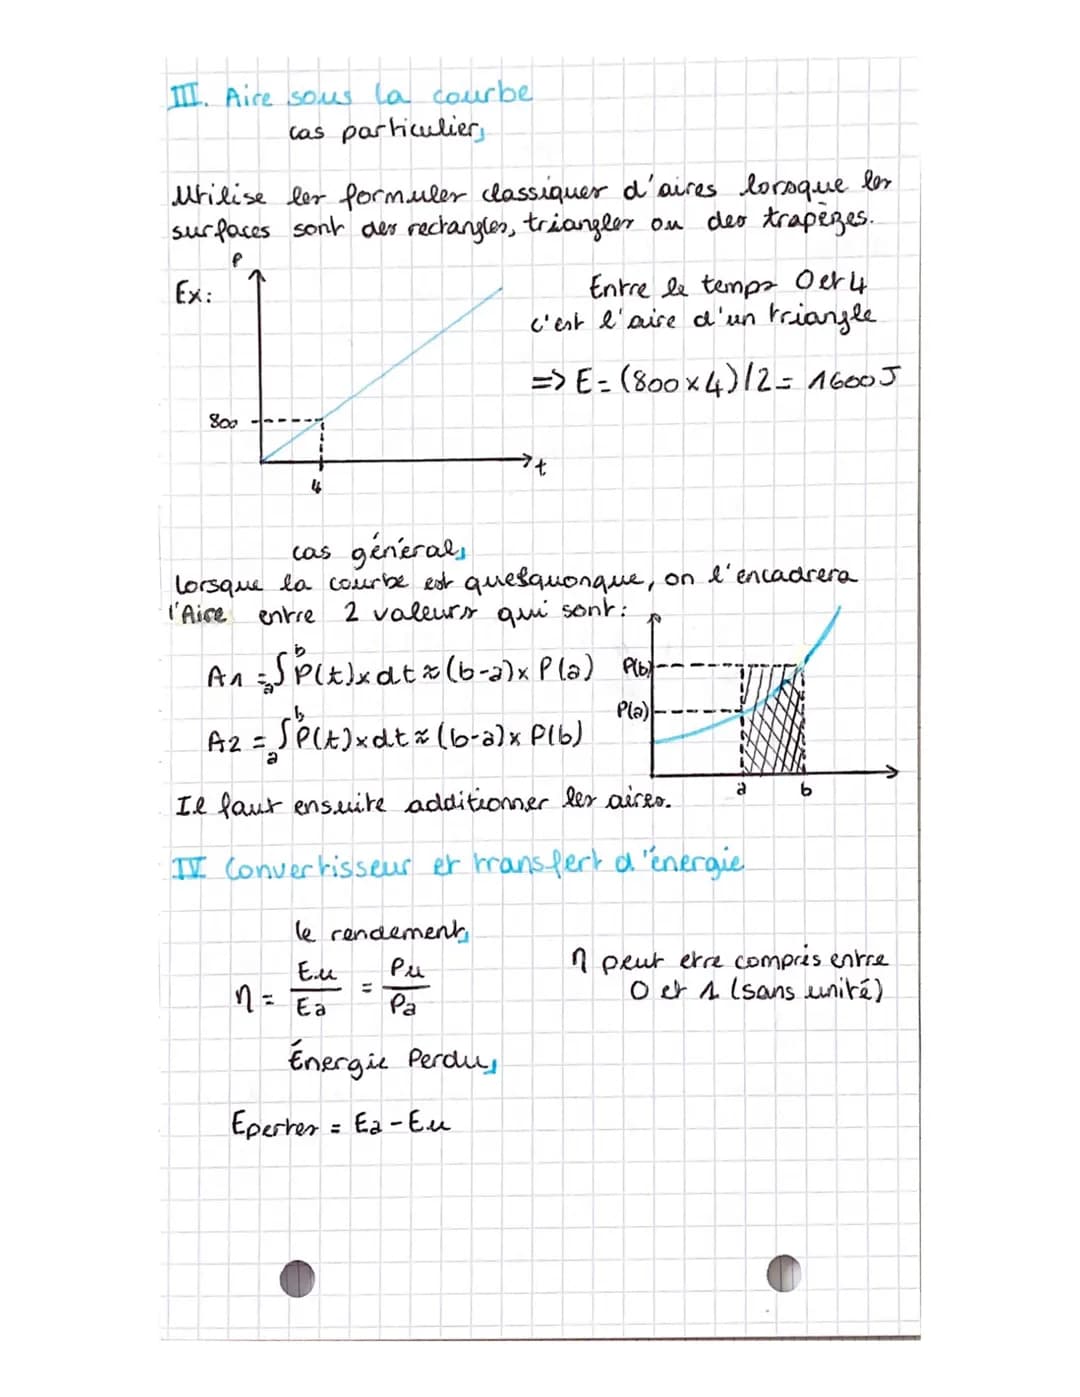 III. Aire sous la courbe
cas particulier
Utilise les formules classiques d'aires lorsque les
surfaces sont des rectangles, triangles ou des trapèzes.
P
Ex:
Entre le temps 0 et 4
c'est l'aire d'un triangle
=> E = (800 x 4) / 2 = 1600 J
800
t
4
cas général
lorsque la courbe est quesquonque, on l'encadrera
l'Aire entre 2 valeurs qui sont:
A1 = ∫ₐᵇ P(t) x dt ≈ (b-a) x P(a)
P(b)
P(a)
A2 = ∫ₐᵇ P(t) x dt ≈ (b-a) x P(b)
a b
Il faut ensuite additionner les aires.
IV Convertisseur et transfert d'énergie
le rendement
η = Eu/Ea = Pu/Pa
η peut etre compris entre
0 et 1 (sans unité)
Énergie Perdu
Epertes = Ea - Eu